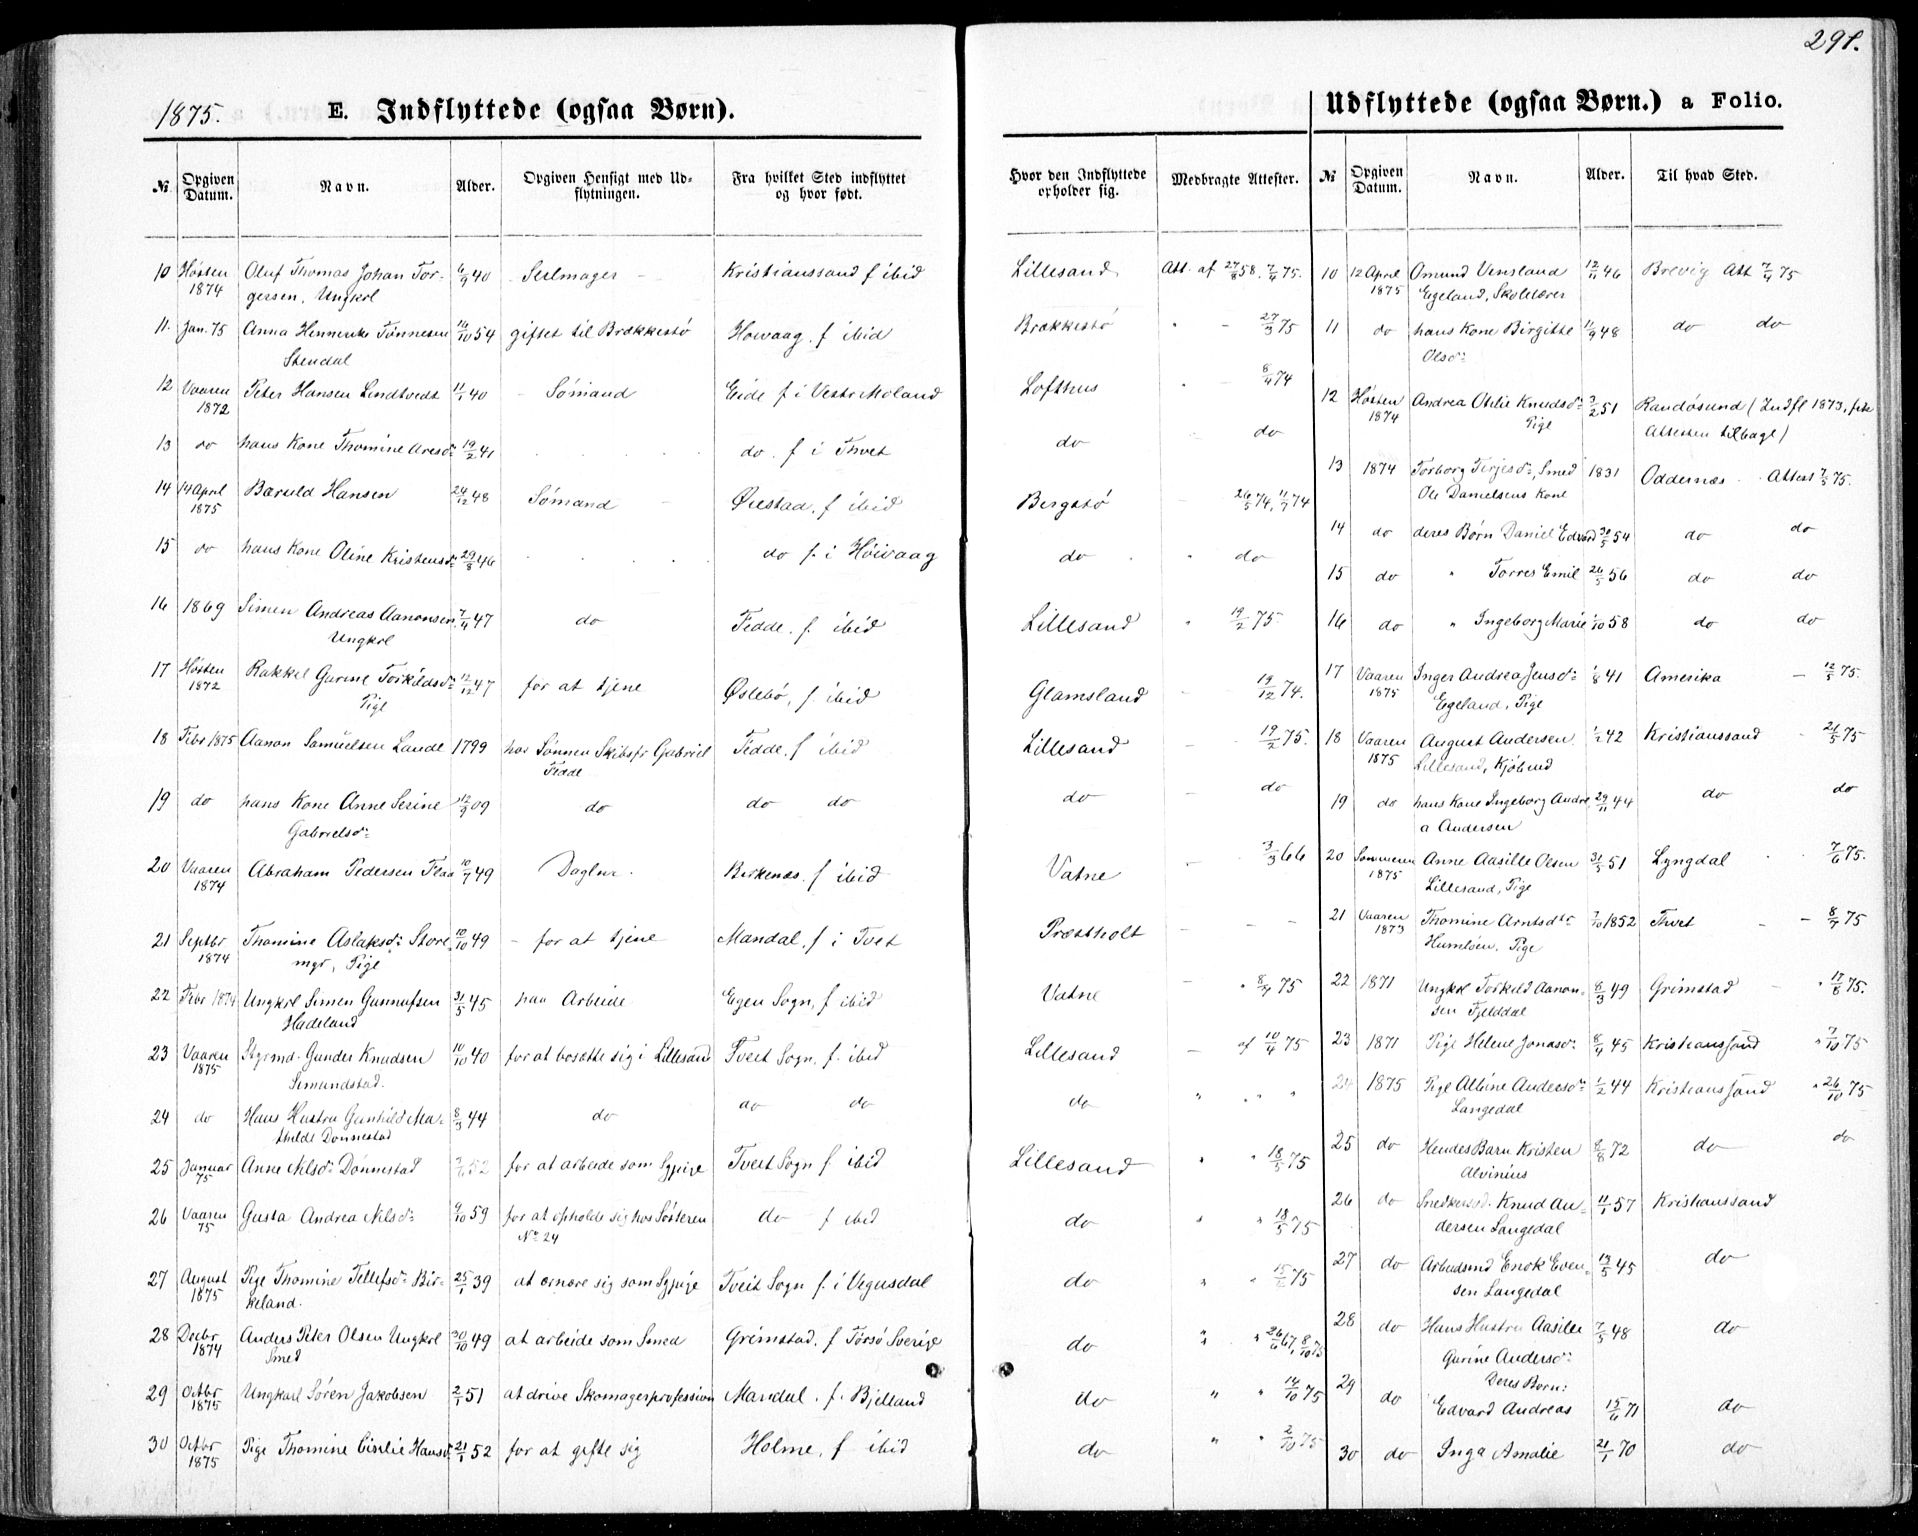 291.
1875. E. Indflyttede (ogsaa Børn).
Udflyttede (ogsaa Børn.) a Folio.
№ Opgiven Datum. Navn. Alder. Opgiven Hensigt med Udflytningen. Fra hvilket Sted indflyttet og hvor født. Hvor den Indflyttede opholder sig. Medbragte Attester.
10 Høsten 1874 Oluf Thomas Johan Tor- 6/9 40 Seilmager - Kristianssand f ibid Lillesand Att. af 27/8 58. 7/4 75.
gersen, Ungkrl
11. Jan. 75 Anna Tønnesen 14/10 54 giftet til Brækkestø Høivaag, f ibid Brækkestø " - 27/3 75
Stendal
12 Vaaren 1872 Peter Hansen Lindtvedt 11/1 40 - Sømand Eide f i Vestr Moland Lofthus " - 8/4 74
13 do hans Kone Thomine Aresd: 19/2 41 do. f i Thvet do do
14 14 April 1875 Baruld Hansen 24/12 48 Sømand - Øiestad, f ibid Bergstø - 26/5 74, 11/7 74
15 do hans Kone Oline Kristensd: 29/8 46 do f. i Høivaag do " do
16 1869 Simen Andreas Aanonsen 7/4 47 do Fedde. f. ibid Lillesand " 19/2 75.
Ungkrl
17 Høsten 1872 Rakkel Gurine Torkildsd: 12/12 47 for at tjene Øslebø, f. ibid Glamsland - 19/12 74.
Pige
18 Febr 1875 Aanon Samuelsen Lande 1799 hos Sønnen Skibsfr Gabriel Fedde. f ibid Lillesand - 19/2 75.
Fedde
19 do hans Kone Anne Serine 12/9 09 do do do do - do
Gabrielsd:
20 Vaaren 1874 Abraham Pedersen Flaa 10/7 49 Dagleier. Birkenæs. f ibid Vatne - 3/3 66
21 Septbr 1874 Thomine Aslaksd: Store- 10/10 49 - for at tjene Mandal, f i Tvet Præstholt - - -
myr, Pige
22 Febr 1874 Ungkrl Simen Gunnufsen 31/5 45 paa Arbeide Egen Sogn, f ibid Vatne - " 8/4 75
Hadeland
23 Vaaren 1875 Styrmd. Gunder Knudsen 10/10 40 for at bosætte sig i Lillesand Tveit Sogn. f. ibid Lillesand - af 10/4 75
Simundstad.
24 do Hans Hustru Gunhild Ma- 8/3 44 do do do do " " "
thilde Dønnestad
25 Januar 75 Anne Nilsd: Dønnestad 52 for at arbeide som Sypige Tveit Sogn f ibid Lillesand " " 18/5 75
26 Vaaren 75 Gusta Andrea Nilsd: 9/10 59 for at opholde sig hos Søsteren do f ibid do " " 18/5 75
No 24
27 August 1875 Pige Thomine Tellefsd: Bir- 25/1 39 at ernære sig som Sypige Tveit Sogn f. i Vegusdal do " " 75
keland.
28 Decbr 1874 Anders Peter Olsen Ungkrl 30/10 49 at arbeide som Smed Grimstad. f Torsø Sverige do " " 26/6 67, 8/10 75
Smed
29 Octbr 1875 Ungkarl Søren Jakobsen 2/1 51 at drive Skomagerprofession Mandal. f. Bjelland do " " 14/10 75
30 Octbr 1875 Pige Thomine Cicilie Hansd: 21/1 52 for at gifte sig Holme, f ibid do " " 2/10 75
№ Opgiven Datum. Navn. Alder. Til hvad Sted.
10 12 April 1875 Omund Vensland 12/11 46 Brevig Att 7/4 75
Egeland, Skolelærer
11 do hans Kone Birgitte 11/9 48 do do
Olsd:
12 Høsten 1874 Andrea Otilie Knudsd: 3/2 51 Randøsund (Indfl 1873,
Pige Attesten tilbage)
13 1874 Torborg Terjesd:, Smed 1831 Oddernæs. Attest 7/5 75.
Ole Danielsens Kone
14 do deres Børn Daniel Edvard 30/5 54 do do
15 do " Torres Emil 26/5 56 do do
16 do " Ingeborg Marie 1/10 58 do do
17 Vaaren 1875 Inger Andrea Jensd: 1/8 41 Amerika - 12/5 75.
Egeland, Pige
18 Vaaren 1875 August Andersen 1/2 42 Kristianssand - 21/5 75
Lillesand, Kjøbmd
19 do hans Kone Ingeborg Andre 29/11 44 do do
a Andersen
20 Sommeren 1875 Anne Aasille Olsen 31/5 51 Lyngdal 7/6 75.
Lillesand, Pige
21 Vaaren 1873 Thomine Arntsdtr 7/10 1852 Thvet - - 8/7 75
Humløen. Pige
22 1871 Ungkrl Torkild Aanon- 8/3 49 Grimstad - " 17/8 75.
sen Fjelddal
23 1871 Pige Helene Jonasd: 8/4 45 Kristianssand " 7/10 75
24 1875 Pige Albine Andersd: 1/2 44 Kristianssand " 26/10 75
Langedal
25 do Hendes Barn Kristen 8/8 72 do do
Alvinius
26 do Knud An- 11/1 57 Kristianssand
dersen Langedal
27 do Arbeidsmd Enok Even- 13/5 45 do
sen Langedal
28 do Hans Hustru Aasille 7/5 48 do
Gurine Andersd:
29 Deres Børn:
do Edvard Andreas 15/6 71 do
30 do Inga Amalie 21/1 70 do